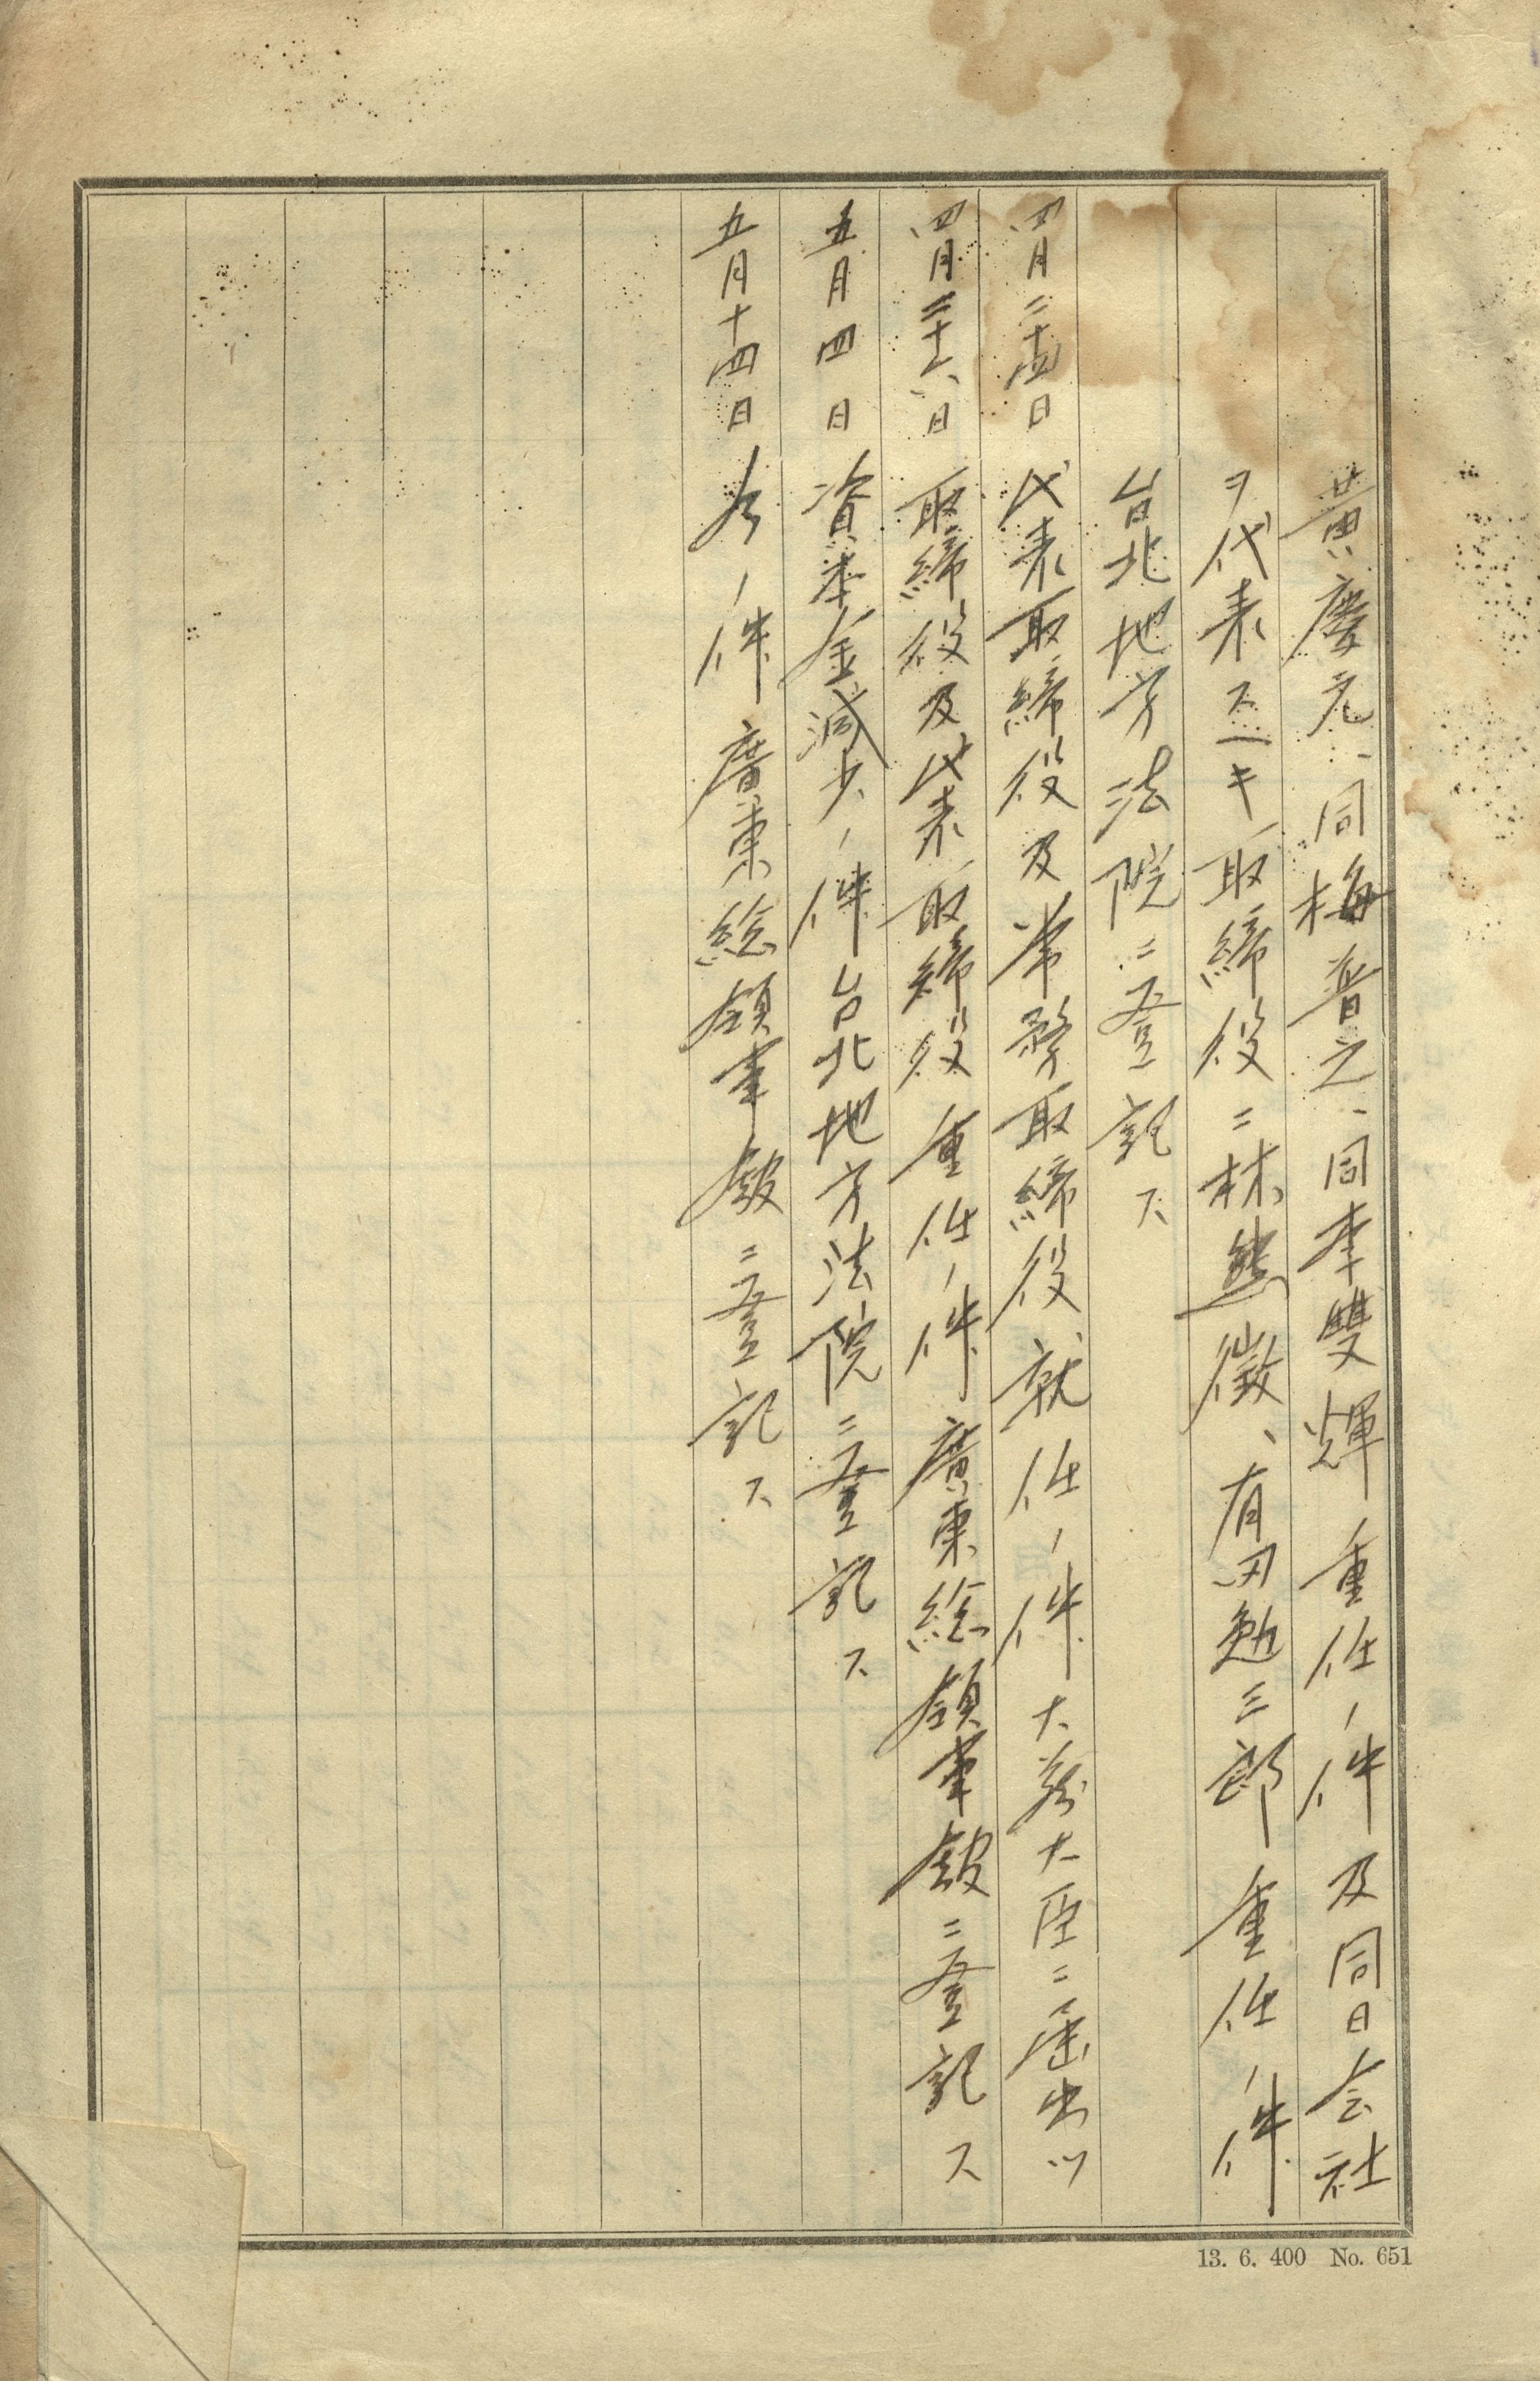 黄慶元、同梅普之、同李雙輝重任ノ件及同日会社
ヲ代表スベキ取締役ニ林熊徴、有田勉三郎重任ノ件
台北地方法院ニ登記ス
四月二十四日 代表取締役及常務取締役就任ノ件大蔵大臣ニ届出ツ
四月二十六日 取締役及代表取締役重任ノ件廣東総領事館ニ登記ス
五月四日 資本金減少ノ件台北地方法院ニ登記ス
五月十四日 仝ノ件廣東総領事館ニ登記ス
13. 6. 400 No. 651